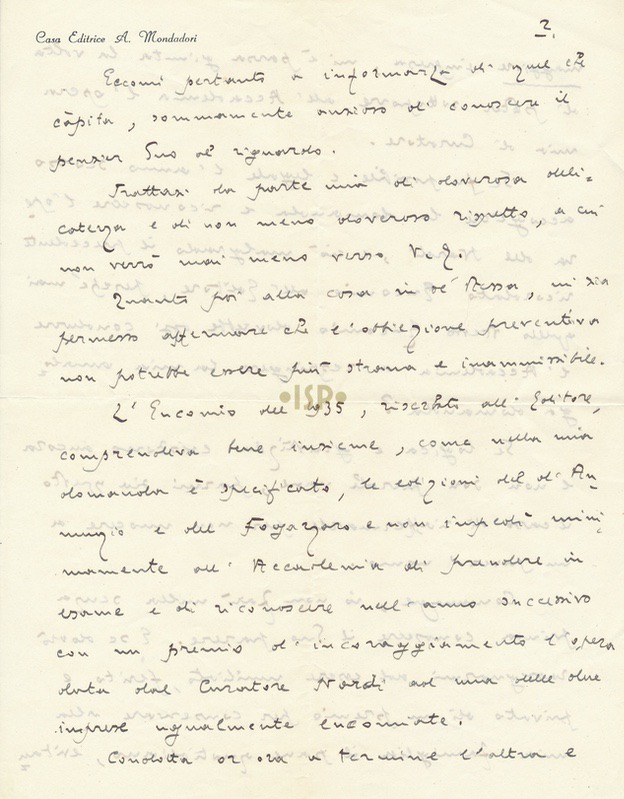 Casa Editrice A. Mondadori
2.
Eccomi pertanto a informarLa di quel che
càpita, sommamente ansioso di conoscere il
pensier Suo al riguardo.
Trattasi da parte mia di doverosa deli=
catezza e di non meno doveroso rispetto, a cui
non verrò mai meno verso V.E.
Quanto poi alla cosa in sé stessa, mi sia
permesso affermare che l'obbiezione preventiva
non potrebbe essere più strana e inammissibile.
•ISP•
L'Encomio del 1935, riserbato all'Editore,
comprendeva bene insieme, come nella mia
domanda è specificato, le edizioni del d'An=
nunzio e del Fogazzaro e non impedì mini=
mamente all'Accademia di prendere in
esame e di riconoscere nell'anno successivo
con un premio d'incoraggiamento l'opera
data dal Curatore Nardi ad una delle due
imprese ugualmente encomiate.
Condotta or ora a termine l'altra e